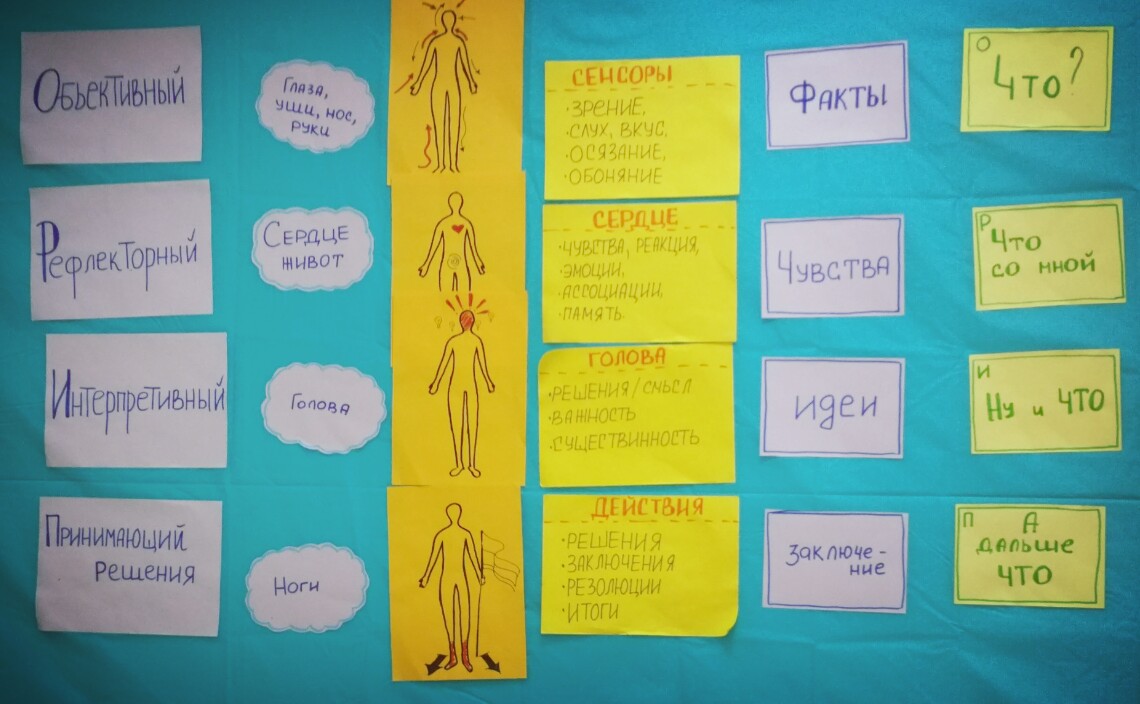 Объективный
Глаза,
уши, нос,
руки
СЕНСОРЫ
·ЗРЕНИЕ,
·СЛУХ, ВКУС,
·ОСЯЗАНИЕ,
·ОБОНЯНИЕ
ФАКТЫ
О
Что?
Рефлекторный
Сердце
живот
СЕРДЦЕ
·ЧУВСТВА, РЕАКЦИЯ,
·ЭМОЦИИ,
·АССОЦИАЦИИ,
·ПАМЯТЬ.
Чувства
Р
Что
со мной
Интерпретивный
Голова
ГОЛОВА
·РЕШЕНИЯ/СМЫСЛ
·ВАЖНОСТЬ
·СУЩЕСТВИННОСТЬ
идеи
И
Ну и ЧТО
Принимающий
Решения
Ноги
ДЕЙСТВИЯ
·РЕШЕНИЯ
·ЗАКЛЮЧЕНИЯ
·РЕЗОЛЮЦИИ
·ИТОГИ
Заключе-
ние
П
А
дальше
ЧТО